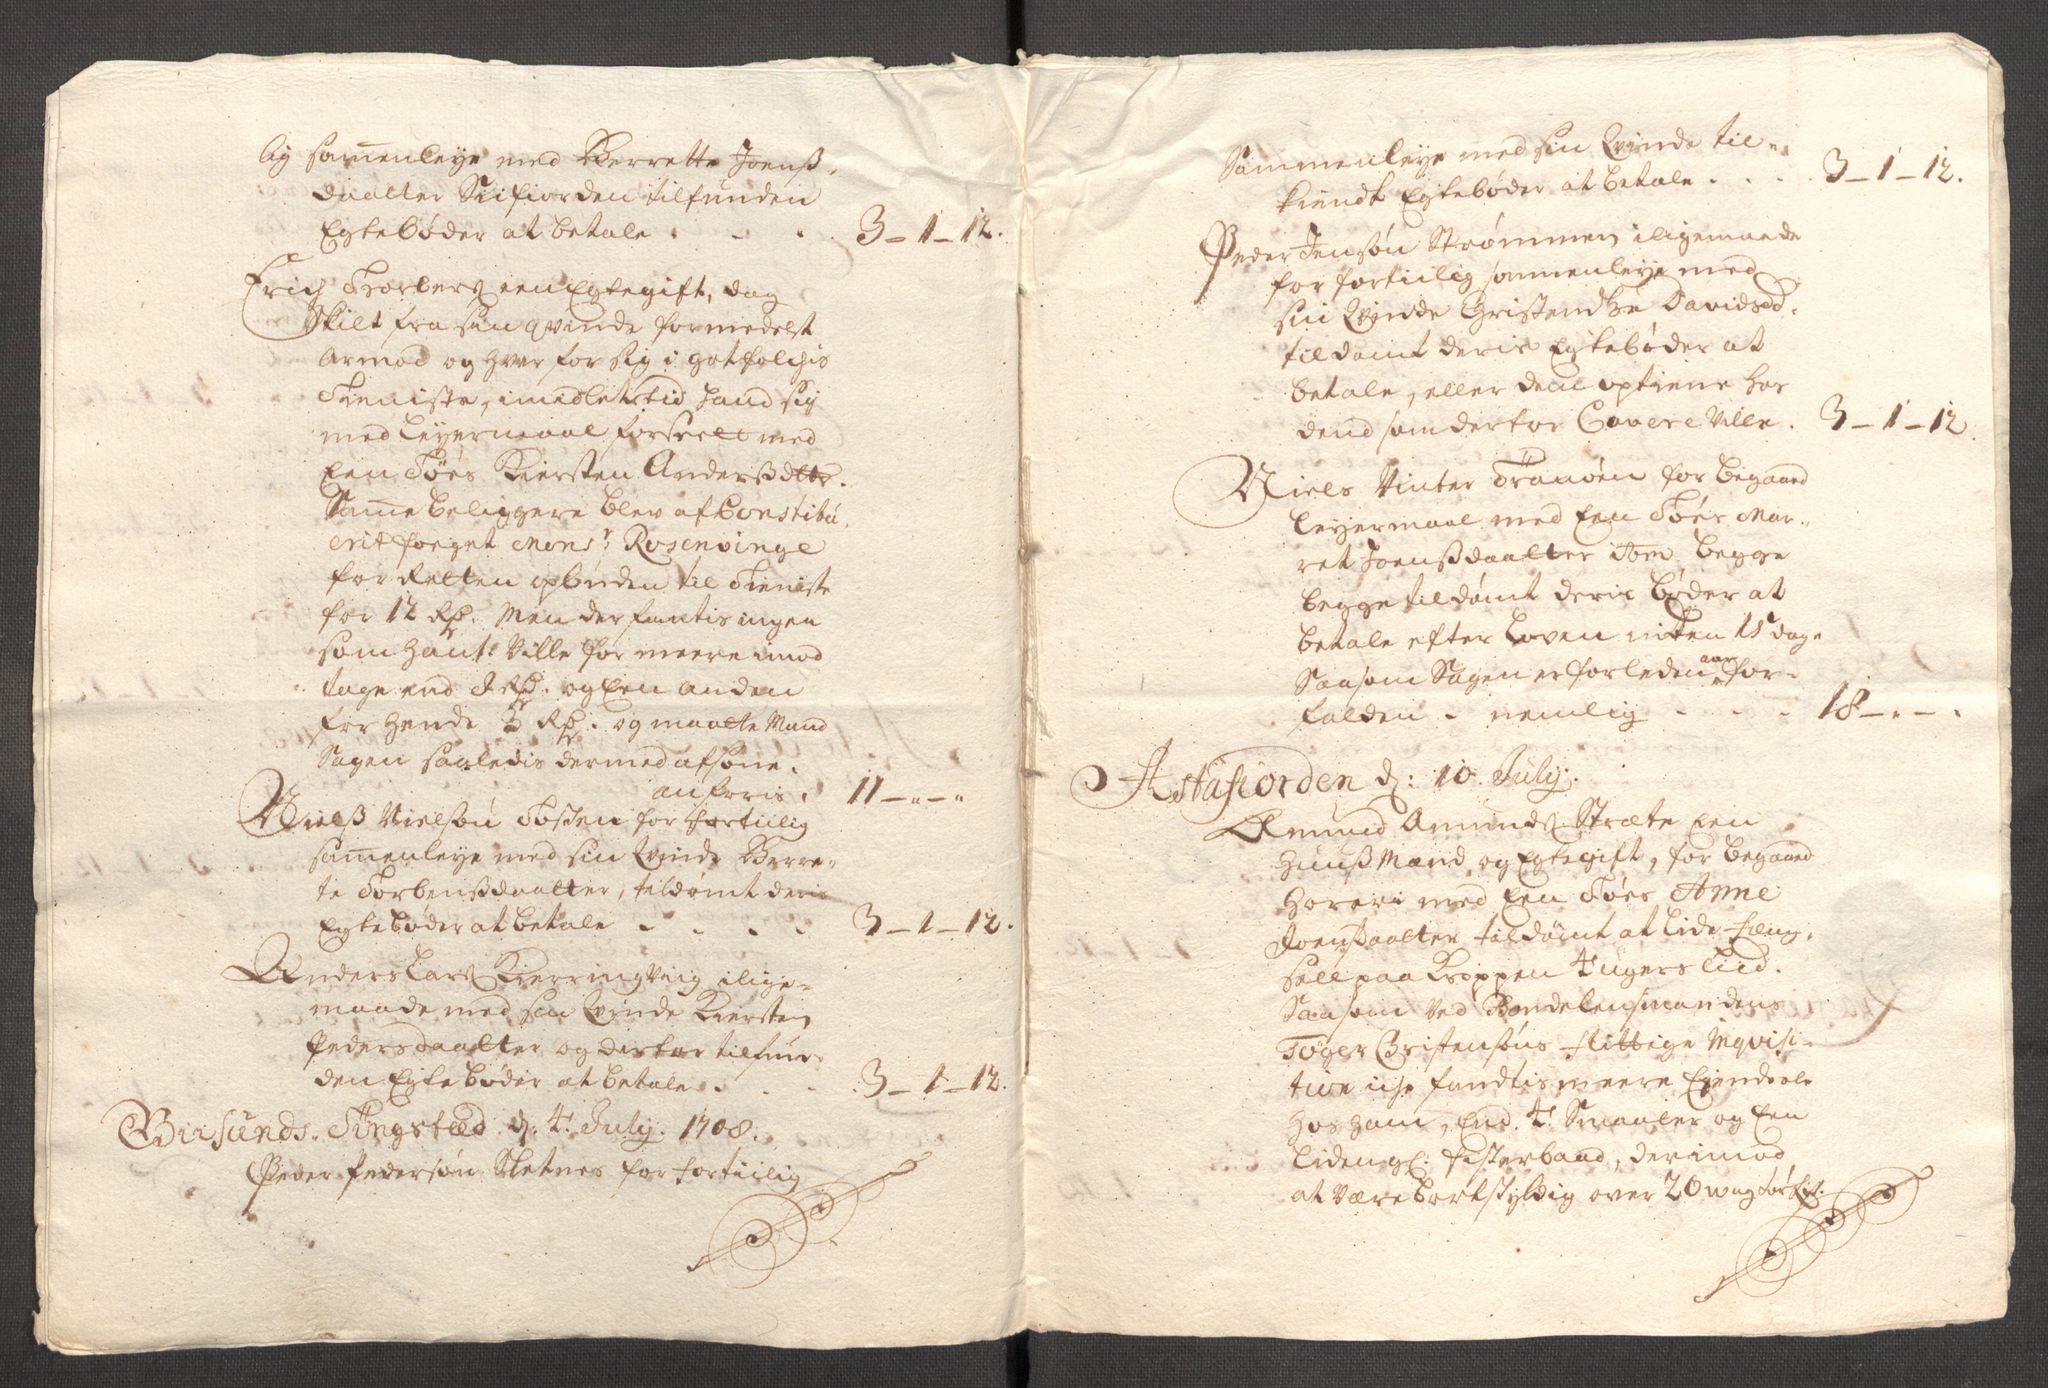 lig sammenleye med Berrette Joenß,
daatter Siifiorden tilfunden
Egtebøder at betale . . . 3 - 1 - 12.
Erich Torbers een Egtegift, dog
Skilt fra sin qvinde formedelst
armod og hver for sig i got folchis
Tieniste, imidlertid hand sig
med leyermaal forseelt med
Een Tøes Kiersten Anderßdtr.
Samme beligger blev af Constitu,
erit foeget Monsr Rosenvinge
for Retten opbuden til Tieniste
for 12 Rd. Men der fantis ingen
som hans: Ville for meere imod
tage end 8 Rd. og Een anden
for hende 3 Rd. og maatte Mand
Sagen saaledis dermed afsone.
anforis. 11 - " - "
Nielß Nielsøn Tosten for fortiilig
sammenleye med sin Qvinde Berre-
te Torbenßdaatter, tildømt deris
Egtebøder at betale . . . . 3 - 1 - 12.
Anders Lars Kierringvig ilige-
maade med sin Qvinde Kiersten
Pedersdaatter og derfor tilfun-
den Egtebøder at betale . . 3 - 1 - 12.
Giisunds. Tingsted d: 4. July. 1708.
Peder Pedersøn Sletnes for fortiilig
Sammenleye med sin Qvinde til-
kiendt Egtebøder at betale . . . 3 - 1 - 12.
Peder Jensøn Strømmen iligemaade
for fortiilig sammenleye med
sin Qvinde Christendtze Davidsd.
tildømt deris Egtebøder at
betale, eller dem optiene hos
dend som derfor Cavere Ville. 3 - 1 - 12.
Niels Vinter Tranøen for begaaed
leyermaal med Een Tøes Mar-
ret Joenßdaatter som begge
begge tildømt deris bøder at
betale efter loven inden 15 dage
Saasom Sagen er forleden aar for-
falden . nemlig . . . 18 - " - "
Astafiorden d: 10. July.
Amund Amunds. Stræte Een
Huuß Mand og Egtegift, for begaaed
Horeri med Een Tøes Anne
Joenßdaatter tildømt at lide feng,
sell paa kroppen 4 ugers Tiid.
Saasom ved Bøndelensmandens
Tøger Christensøns flittige Inqvisi-
tion iche fandtis meere Eiendeele
hos ham, End 4. Smaaler og Een
liden gl: fisterbaad, derimod
at være bortskyldig over 20 wog tør fisk.